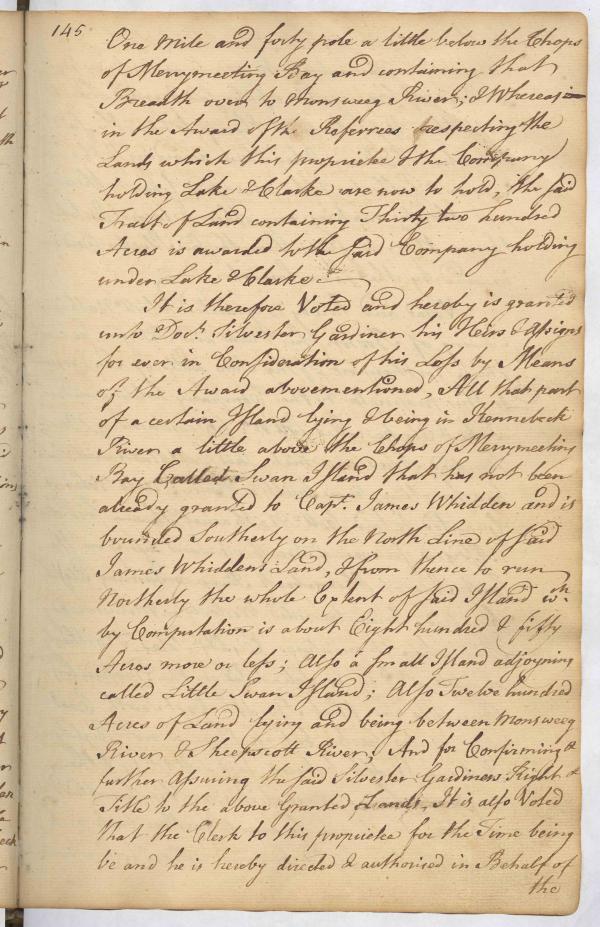 145
One mile and forty pole a little below the Chops
of Merrymeeting Bay and containing that
Breadth over to Monsweeg River; & Whereas
in the Award of the Referrees respecting the
Lands which this propriete & the Company
holding Lake & Clarke are now to hold, the said
Tract of Land containing Thirty two hundred
Acres is awarded to the said Company holding
under Lake & Clarke
It is therefore Voted and hereby is granted
unto Doct. Silvester Gardiner his Heirs & assigns
for ever in Consideration of his Loss by Means
of the Award abovementioned, All that part
of a certain Island lying & being in Kennebeck
River a little above the Chops of Merrymeeting
Bay Called Swan Island that has not been
already granted to Capt. James Whidden and is
bounded Southerly on the North Line of said
James Whiddens Land, & from thence to run
Northerly the whole Extent of said Island wch.
by Computation is about Eight hundred & fifty
Acres more or less; Also a small Island adjoyning
called Little Swan Island; Also Twelve hundred
Acres of Land lying and being between Monsweeg
River & Sheepscott River; And for Confirming &
further assuring the said Silvester Gardiners Right &
Title to the above Granted Lands, It is also Voted
that the Clerk to this propriete for the Time being
be and he is hereby directed & authorised in Behalf of
the